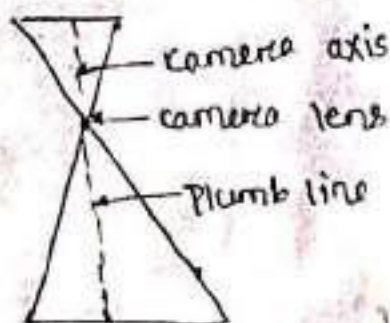 camera axis
camera lens
Plumb line